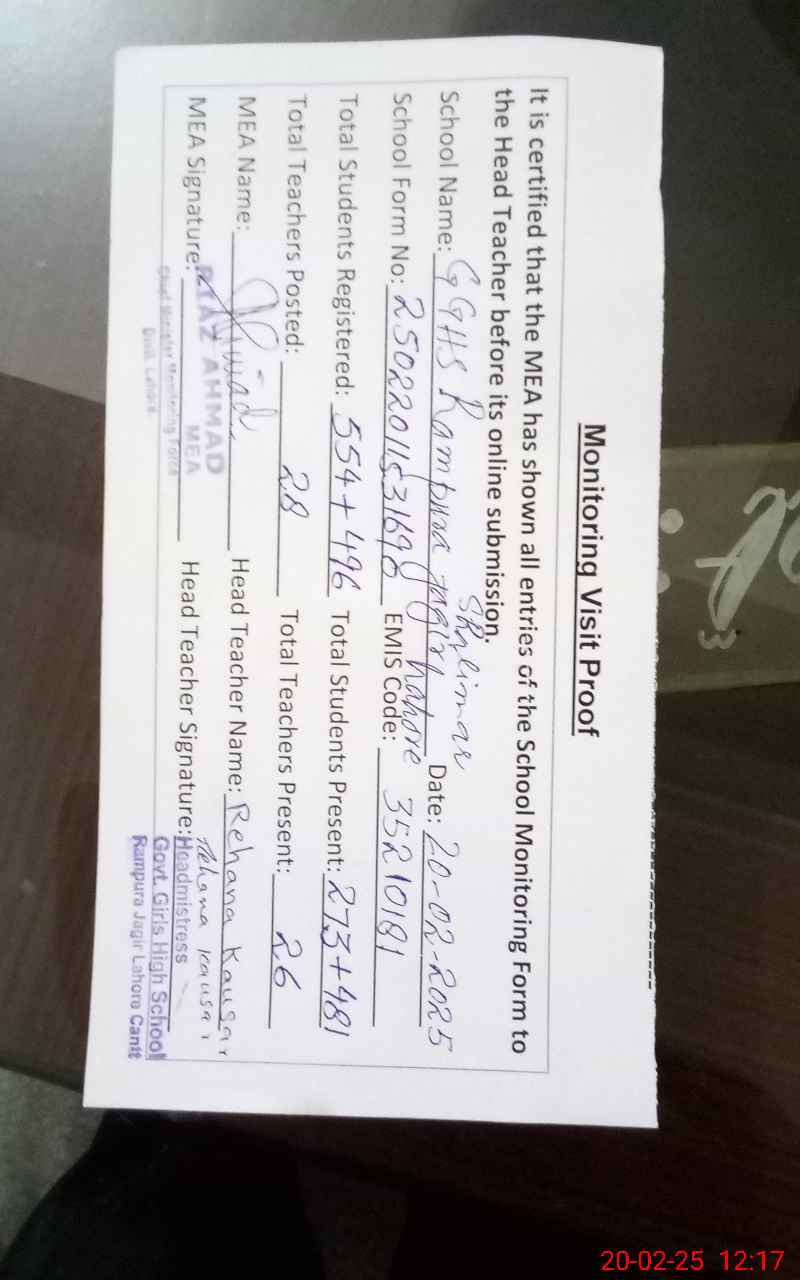 Monitoring Visit Proof
It is certified that the MEA has shown all entries of the School Monitoring Form to
the Head Teacher before its online submission.
Shalimar
School Name: GGHS Rampura Jagir Lahore Date: 20-02-2025
School Form No: EMIS Code: 35210181
Total Students Registered: 554+496 Total Students Present: 273+481
Total Teachers Posted: 28 Total Teachers Present: 26
MEA Name: Head Teacher Name: Rehana Kausar
MEA Signature: Head Teacher Signature: Rehana Kausar
RIAZ AHMAD
MEA
Chief Minister Monitoring Force
Distt. Lahore.
Headmistress
Govt. Girls High School
Rampura Jagir Lahore Cantt
20-02-25 12:17